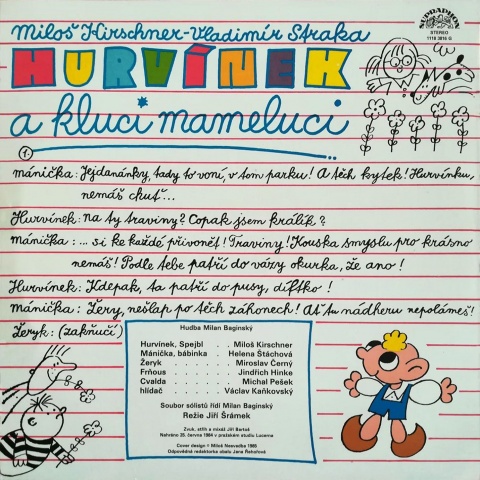 Miloš Kirschner-Vladimír Straka
SUPRAPHON
STEREO
1118 3816 G
HURVÍNEK
a kluci mameluci
1.
mánička: Jejdanánky, tady to voní, v tom parku! A těch kytek! Hurvínku,
nemáš chuť...
Hurvínek: na ty traviny? Copak jsem králík?
Mánička: ... si ke každé přivonět! Traviny! Kouska smyslu pro krásno
nemáš! Podle tebe patří do vázy okurka, že ano!
Hurvínek: Kdepak, ta patří do pusy, díftko!
mánička: Žery, nešlap po těch záhonech! Ať tu nádheru nepolámeš!
Žeryk: (zakňučí)
Hudba Milan Baginský
Hurvínek, Spejbl . Miloš Kirschner
Mánička, bábinka . Helena Štáchová
Žeryk . . . . . Miroslav Černý
Frňous . . . . . Jindřich Hinke
Cvalda . . . . . Michal Pešek
hlídač . . . . . Václav Kaňkovský
Soubor sólistů řídí Milan Baginský
Režie Jiří Šrámek
Zvuk, střih a mixáž Jiří Bartoš
Nahráno 25. června 1984 v pražském studiu Lucerna
Cover design © Miloš Nesvadba 1985
Odpovědná redaktorka obalu Jana Řehořová